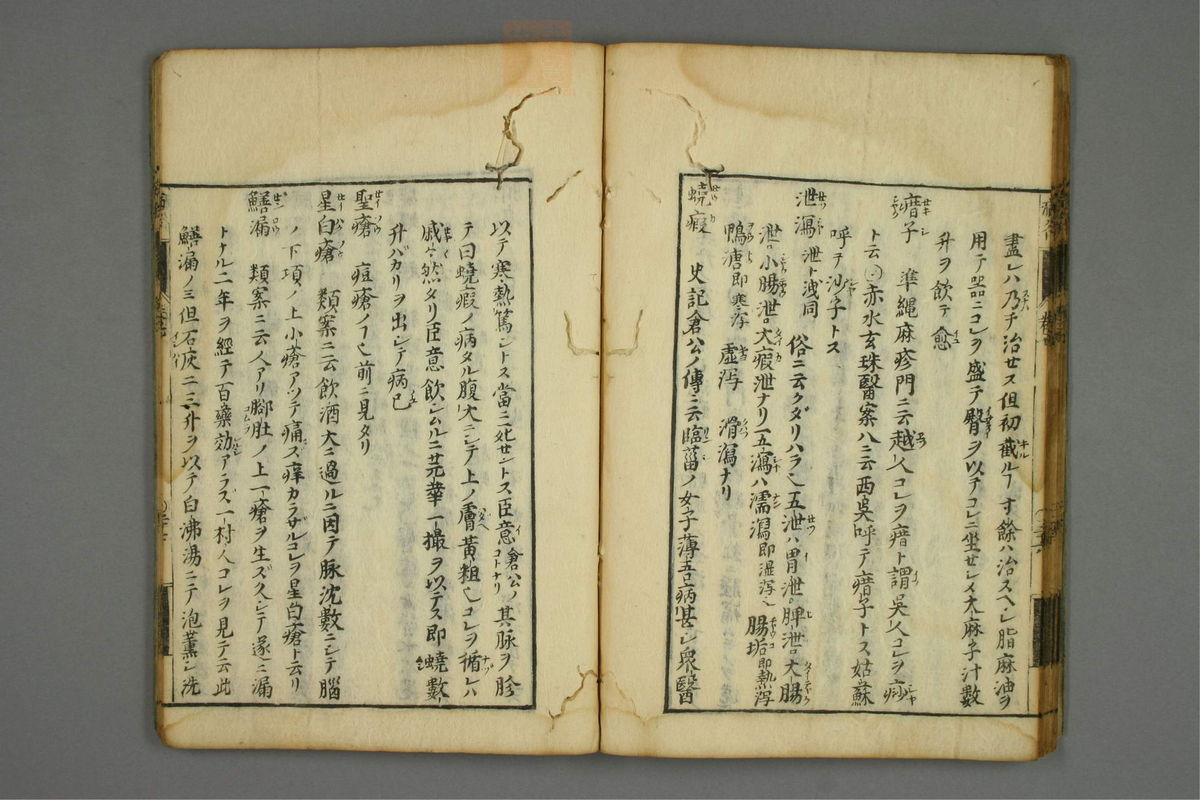 盡レハ乃チ治セス但初截ルヿ寸餘ハ治スヘシ脂麻油ヲ
用テ器ニコレヲ盛テ臀ヲ以テコレニ坐セシメ大麻子汁數
升ヲ飲テ愈
瘄子 準縄麻疹門ニ云越人コレヲ瘄ト謂呉人コレヲ痧
ト云○赤水玄珠醫案ハニ云西呉呼テ瘄子トス姑蘇
呼テ沙子トス
泄瀉 泄ト洩同 俗ニ云クダリハラ也五泄ハ胃泄脾泄大腸
泄小腸泄大瘕泄ナリ五瀉ハ濡瀉即湿瀉也腸垢即熱瀉
鴨溏即寒瀉 虚瀉 滑瀉ナリ
蟯瘕 史記倉公ノ傳ニ云臨菑ノ女子薄吾病甚シ衆醫
以テ寒熱篤シトス當ニ死セントス臣意倉公ノコトナリ其脉ヲ胗
テ曰蟯瘕ノ病タル腹大ニシテ上ノ膚黄粗也コレヲ循レハ
戚々然タリ臣意飲シムルニ芫華一撮ヲ以テス即蟯數
升バカリヲ出シテ病已
聖瘡 痘瘡ノヿ也前ニ見タリ
星白瘡 類案ニ云飲酒大ニ過ルニ因テ脉沈數ニシテ腦
ノ下項ノ上小瘡アツテ痛ズ痒カラザルコレヲ星白瘡ト云リ
鱔漏 類案ニ云人アリ脚肚ノ上一瘡ヲ生ズ久シテ遂ニ漏
トナルニ年ヲ經テ百藥効アラズ一村人コレヲ見テ云此
鱔漏ノミ但石灰二三升ヲ以テ白沸湯ニテ泡薫シ洗